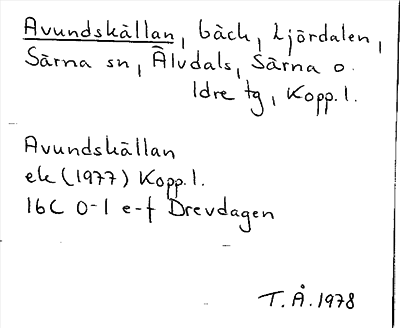 Avundskällan, bäck, Ljördalen,
Särna sn, Älvdals, Särna o.
Idre tg, Kopp.l.
Avundskällan
ek (1977) Kopp.l.
16C 0-1 e-f Drevdagen
T.Å.1978